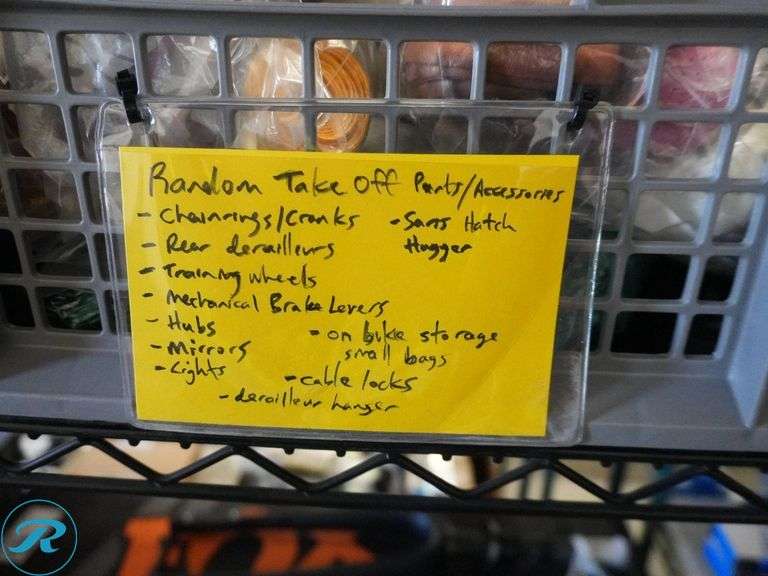 Random Take Off Parts/Accessories
- Chainrings/Cranks
- Rear derailleurs
- Training wheels
- Mechanical Brake Levers
- Hubs
- Mirrors
- Lights
- Sans Hatch
Hugger
- on bike storage
small bags
- cable locks
- derailleur hanger
R